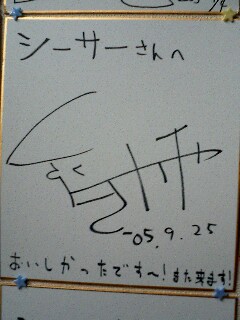 シーサーさんへ
05.9.25
おいしかったです〜!また来ます!